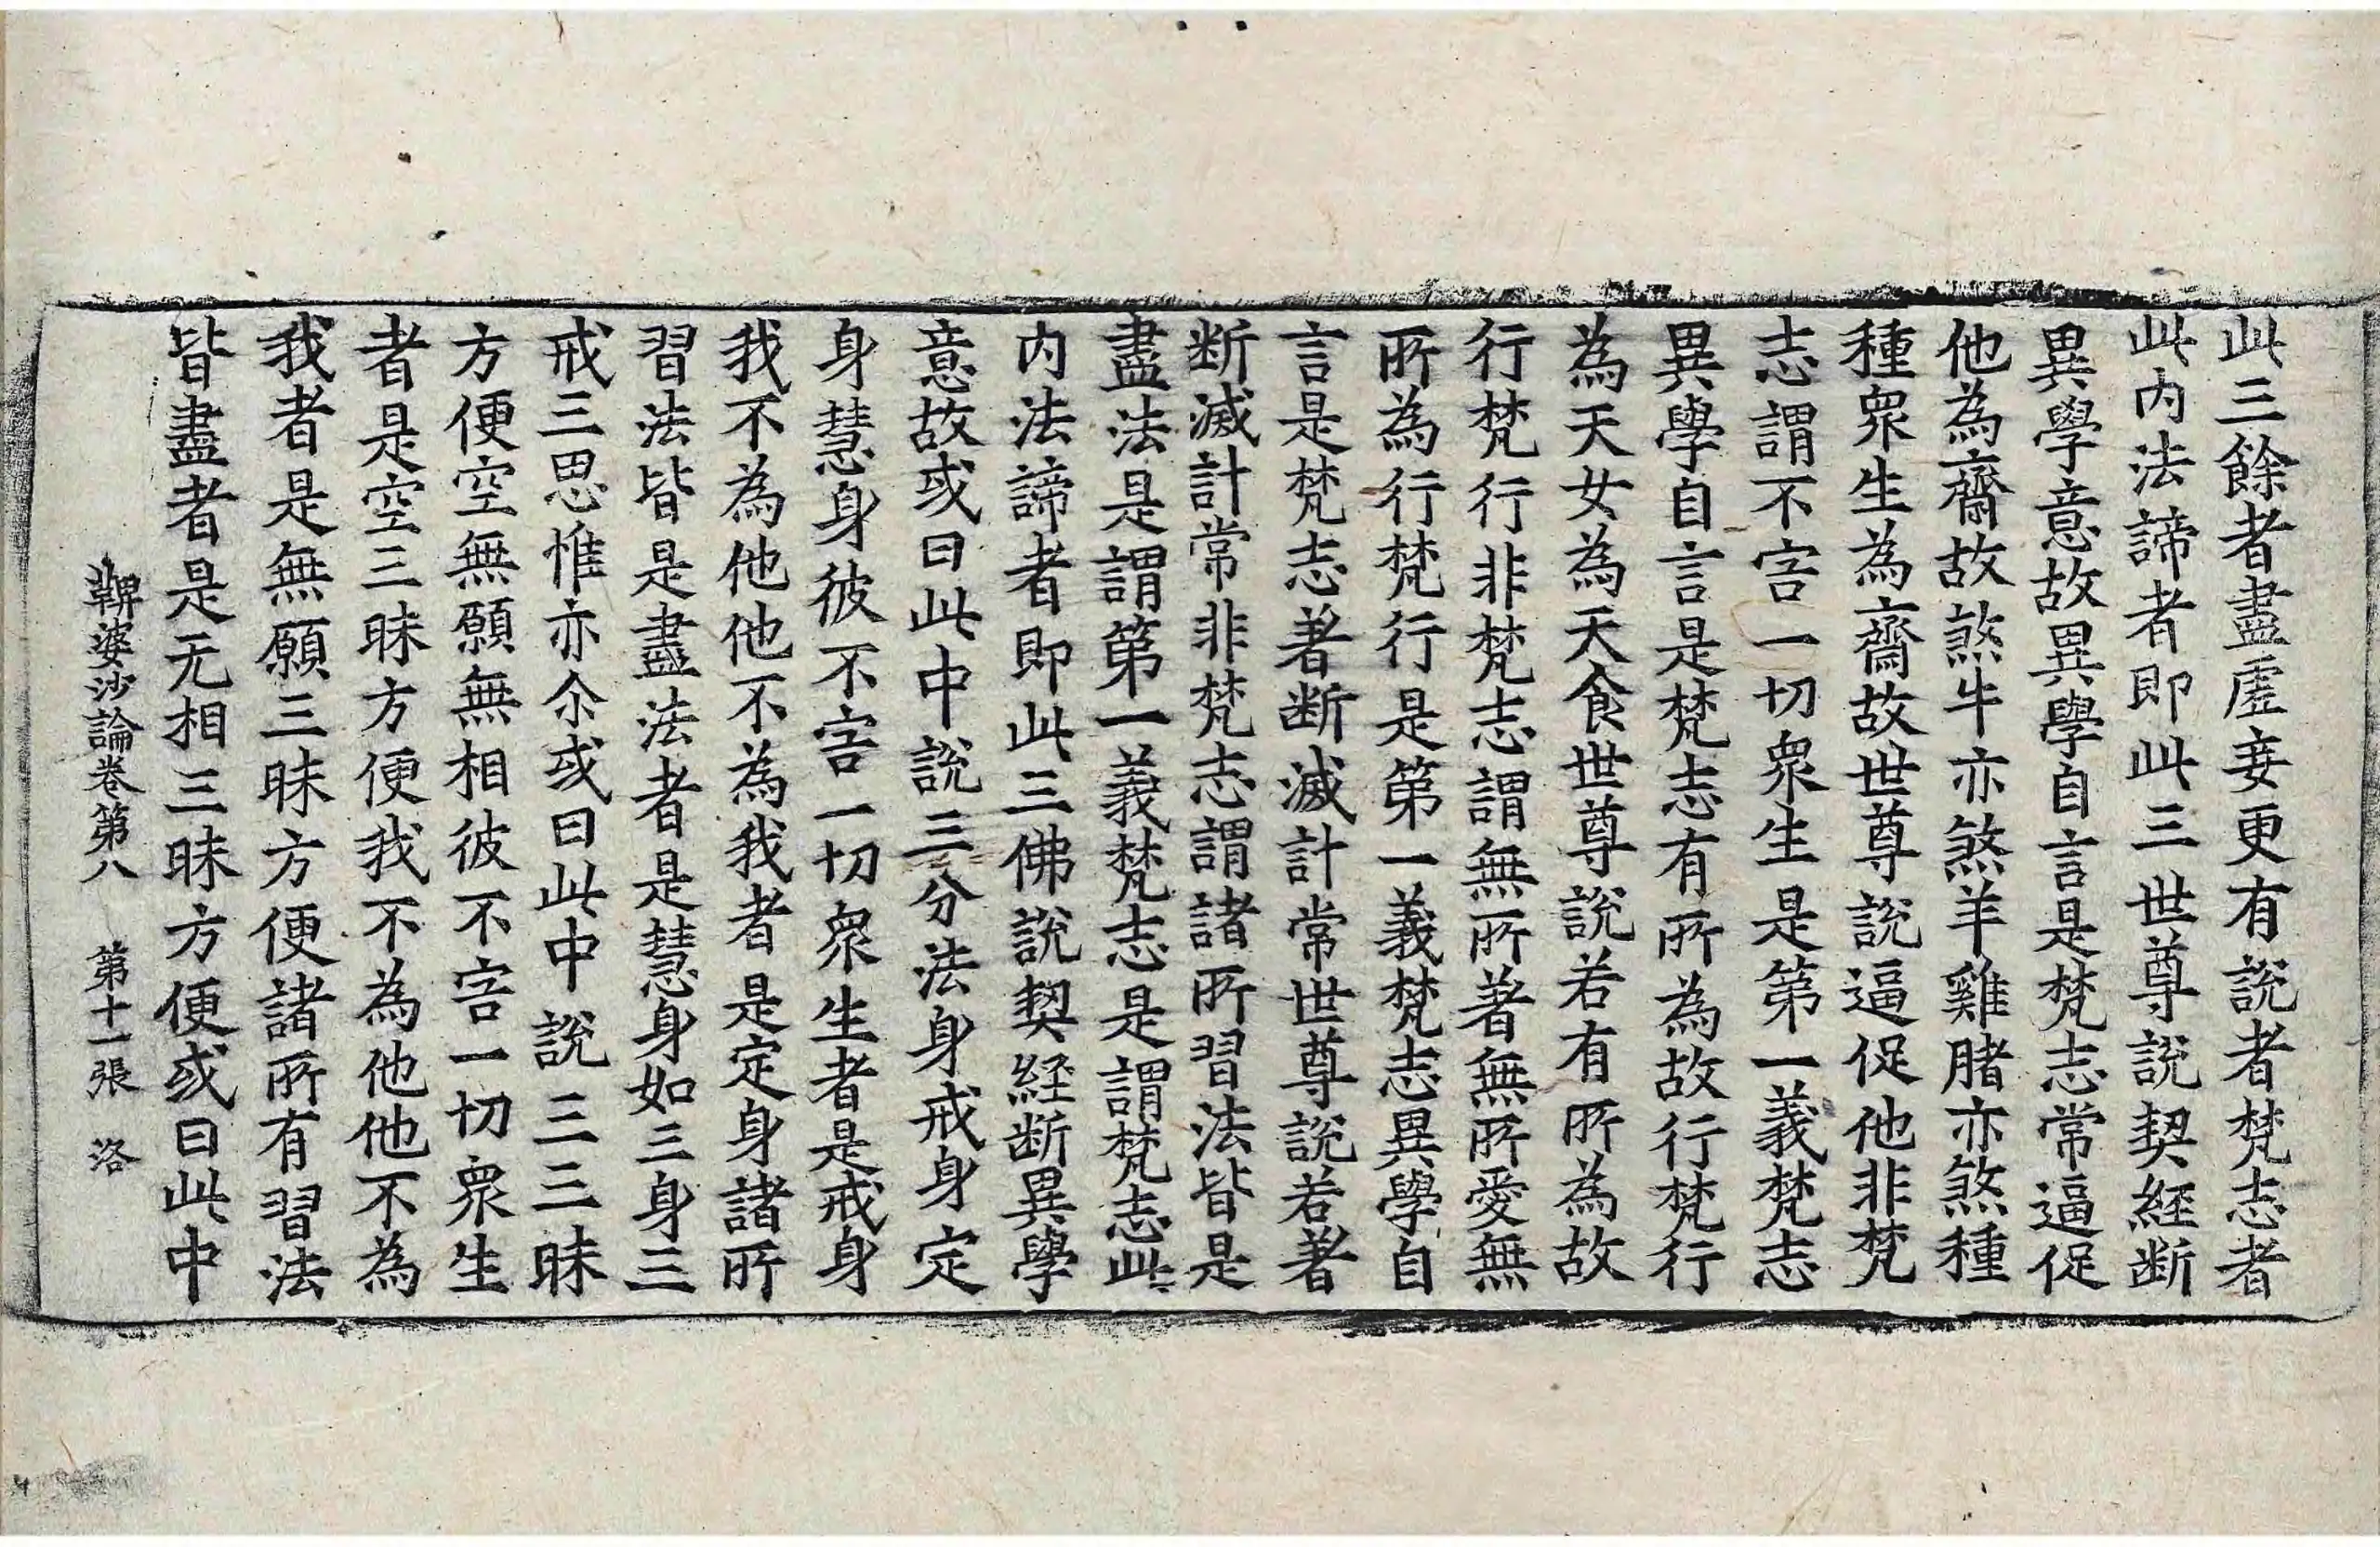 此三餘者盡虛妄更有說者梵志者
此內法諦者即此三世尊說契経断
異學意故異學自言是梵志常逼促
他為齋故煞牛亦煞羊雞腤亦煞種
種衆生為齋故世尊說逼促他非梵
志謂不害一切衆生是第一義梵志
異學自言是梵志有所為故行梵行
為天女為天食世尊說若有所為故
行梵行非梵志謂無所著無所愛無
所為行梵行是第一義梵志異學自
言是梵志著断滅計常世尊說若著
断滅計常非梵志謂諸所習法皆是
盡法是謂第一義梵志是謂梵志此
內法諦者即此三佛說契経断異學
意故或曰此中說三分法身戒身定
身慧身彼不害一切衆生者是戒身
我不為他他不為我者是定身諸所
習法皆是盡法者是慧身如三身三
戒三思惟亦尒或曰此中說三三昧
方便空無願無相彼不害一切衆生
者是空三昧方便我不為他他不為
我者是無願三昧方便諸所有習法
皆盡者是无相三昧方便或曰此中
鞞婆沙論卷第八 第十一張 洛